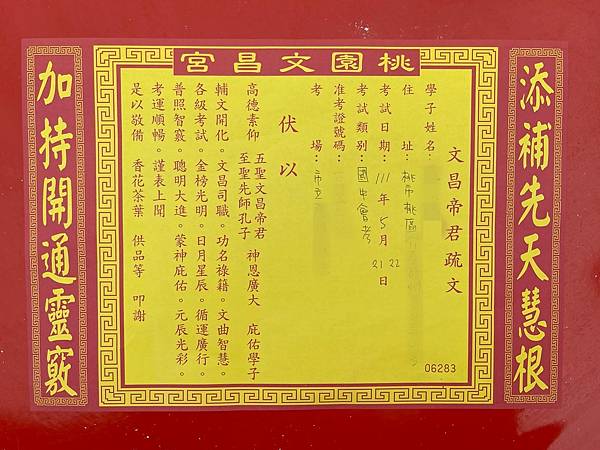 桃園文昌宮
添補先天慧根
文昌帝君疏文
學子姓名：
住　　址：桃市桃區
考試日期：111年5月21 22日
考試類別：國中會考
准考證號碼：
考　　場：市立
伏以
五聖文昌帝君　神恩廣大　庇佑學子
高德素仰
至聖先師孔子
輔文開化。文昌司職。功名祿籍。文曲智慧。
各級考試。金榜光明。日月星辰。循運廣行。
普照智竅。聰明大進。蒙神庇佑。元辰光彩。
考運順暢。謹表上聞
是以敬備　香花茶葉　供品等　叩謝
06283
加持開通靈竅